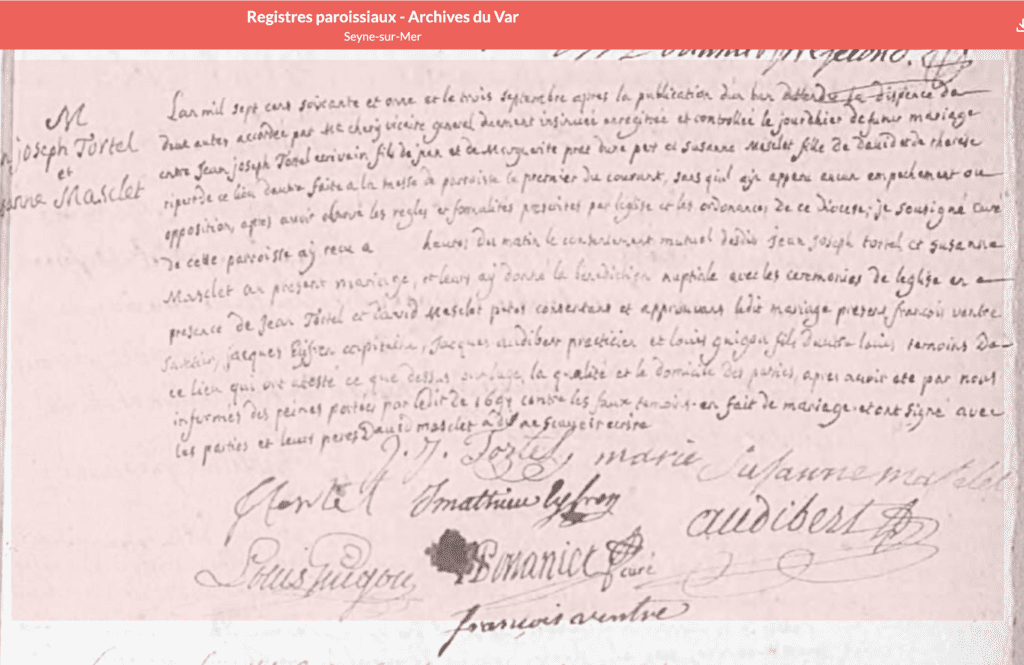 Registres paroissiaux - Archives du Var
Seyne-sur-Mer
M
joseph Tortel
et
Masclet
Lan mil sept cens soixante et onze et le trois septembre apres la publication d'un ban attendu la dispence de
deux autres accordée par Me vicaire general duement insinuée enregitrée et controllée le jourdhier de futur mariage
entre Jean joseph Tortel ecrivain fils de jean et de Marguerite d'une part et Susanne Masclet fille de David et de therese
ripert de ce lieu dautre faite a la messe de paroisse le premier du courant, sans quil aye apparu aucun empechement ou
opposition, apres avoir observé les regles et formalités prescrites par leglise et les ordonances de ce diocese; je sousigné curé
de cette paroisse ay recu a heures du matin le consentement mutuel desdits jean joseph tortel et susanne
Masclet au present mariage, et leurs ay donné la benediction nuptiale avec les ceremonies de leglise en
presence de Jean Tortel et David Masclet peres consentans et approuvans ledit mariage presens françois ventre
jacques capitaine, jacques audibert practicien et louis guigou fils dautre louis temoins de
ce lieu qui ont atesté ce que dessus la qualité et le domicile des parties, apres avoir eté par nous
informés des peines portées par ledit de 1697 contre les faux temoins en fait de mariage et ont signé avec
les parties et leurs peres David masclet a dit ne scavoir ecrire
J. J. Tortel, marie Susanne masclet
audibert
Louis Guigou
curé
françois ventre